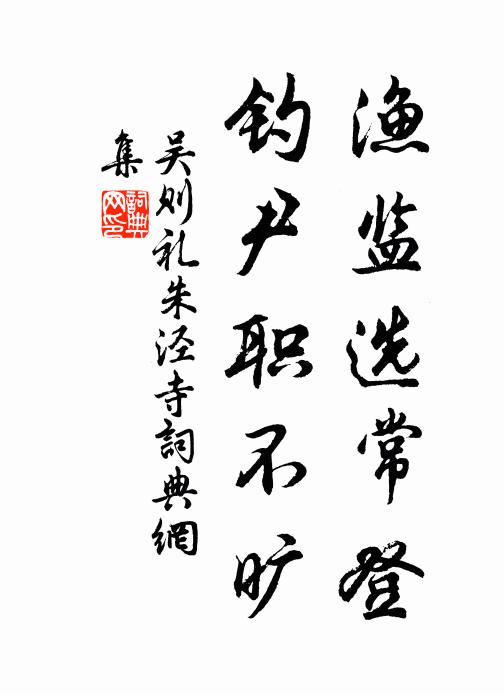 渔监选常登
钓尹职不旷
吴则礼朱泾寺詞典網
集
詞典网印